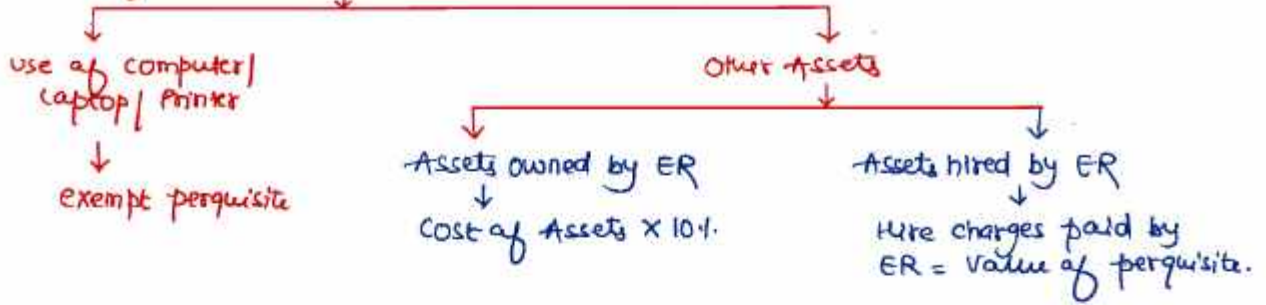 use of computer/
Laptop/ Printer
exempt perquisite
Other Assets
Assets owned by ER
Cost of Assets X 10%.
Assets hired by ER
Hire charges paid by
ER = Value of perquisite.